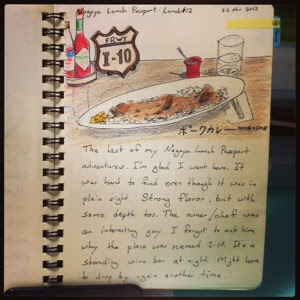 Nagoya Lunch Passport Lunch #12
26 Nov 2013
FRWY
I-10
ポークカレー
The last of my Nagoya Lunch Passport
adventures. I'm glad I went here. It
was hard to find even though it was in
plain sight. Strong flavor, but with
some depth too. The owner/chef was
an interesting guy. I forgot to ask him
why the place was named I-10. It's a
standing wine bar at night. Might have
to drop by again another time.